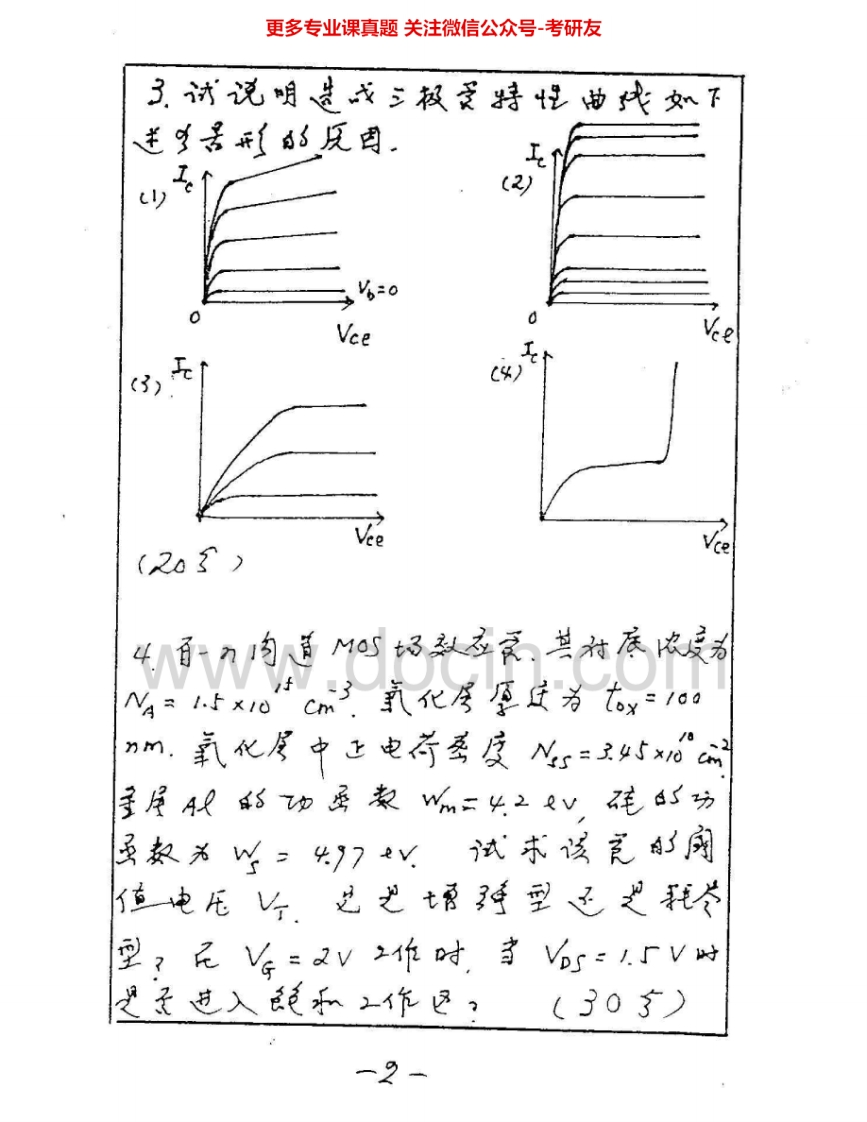 更多专业课真题 关注微信公众号-考研友
3. 试说明造成三极管特性曲线如下
述各异形的原因.
(1) Ic
Vb=0
0
Vce
(2) Ic
0
Vce
(3) Ic
Vce
(4) Ic
Vce
(20分)
www.docin.com
4. 有一n沟道MOS场效应管. 其衬底浓度为
NA = 1.5×10^15 cm^-3. 氧化层厚度为 tox = 100
nm. 氧化层中正电荷密度 Nss = 3.45×10^10 cm^-2.
金属Al 的功函数 Wm = 4.2 ev, 硅的功
函数为 Ws = 4.97 ev. 试求该管的阈
值电压 VT. 它是增强型还是耗尽
型? 在 VG = 2V 工作时, 当 VDS = 1.5 V 时
是否进入饱和工作区? (30分)
-2-